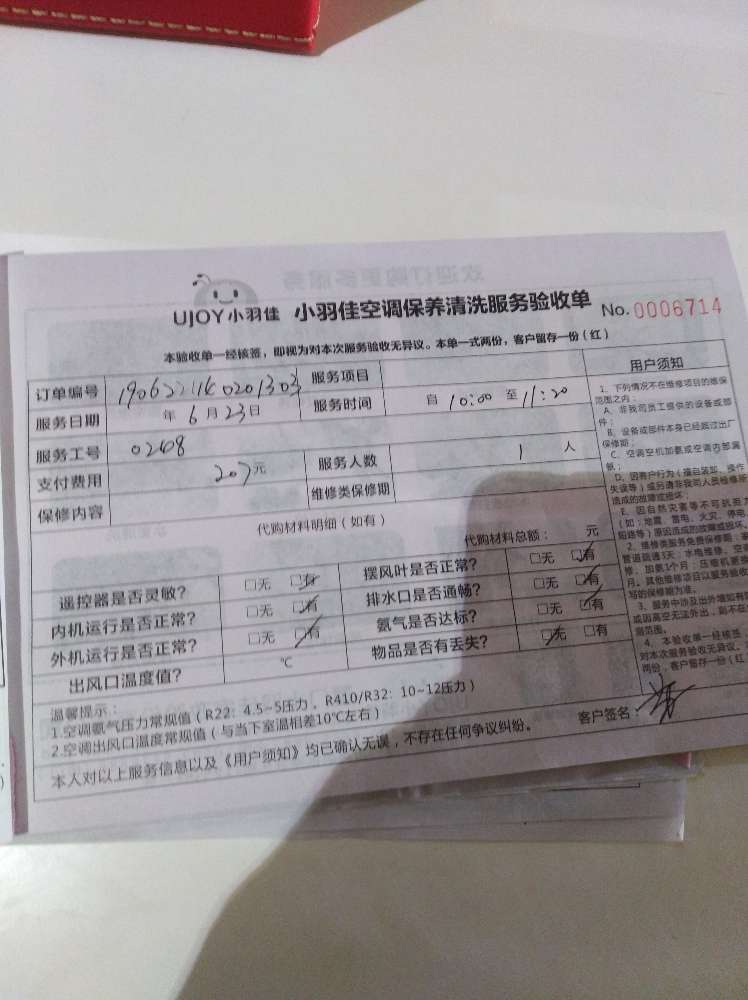 UJOY小羽佳 小羽佳空调保养清洗服务验收单 No. 0006714
本验收单一经核签，即视为对本次服务验收无异议。本单一式两份，客户留存一份（红）
订单编号 服务项目
服务日期 年 6 月 23 日 服务时间 自 10:00 至 11:20
服务工号 0268
支付费用 207 元 服务人数 1 人
保修内容 维修类保修期
代购材料明细（如有） 代购材料总额： 元
遥控器是否灵敏？ □无 □有 摆风叶是否正常？ □无 □有
内机运行是否正常？ □无 □有 排水口是否通畅？ □无 □有
外机运行是否正常？ □无 □有 氨气是否达标？ □无 □有
出风口温度值？ ℃ 物品是否有丢失？ □无 □有
温馨提示：
1.空调氨气压力常规值（R22：4.5~5压力，R410/R32：10~12压力）
2.空调出风口温度常规值（与当下室温相差10℃左右）
本人对以上服务信息以及《用户须知》均已确认无误，不存在任何争议纠纷。 客户签名：
用户须知
1、下列情况不在维修项目的维保
范围之内：
A、非我司员工提供的设备或部
件；
B、设备或部件本身已经超过出厂
保修期；
C、空调空机加氨或空调内部漏
氨；
D、因客户行为（擅自装卸、操作
失误等）或另请非我司人员检修所
造成的故障或损坏；
E、因自然灾害等不可抗
（如：地震、雷电、火灾、停电
短路等）原因造成的故障或损坏
2、维修类服务免费保修期：
管道疏通3天；水电维修、空
修、加氨1个月；压缩机更
月。其他维修项目以服务验收
写的保修期为准。
3、服务中涉及出外增如有
或因高空无法外出，则不在
测范围。
4、本验收单一经核
对本次服务验收无异议。
两份，客户留存一份（红）